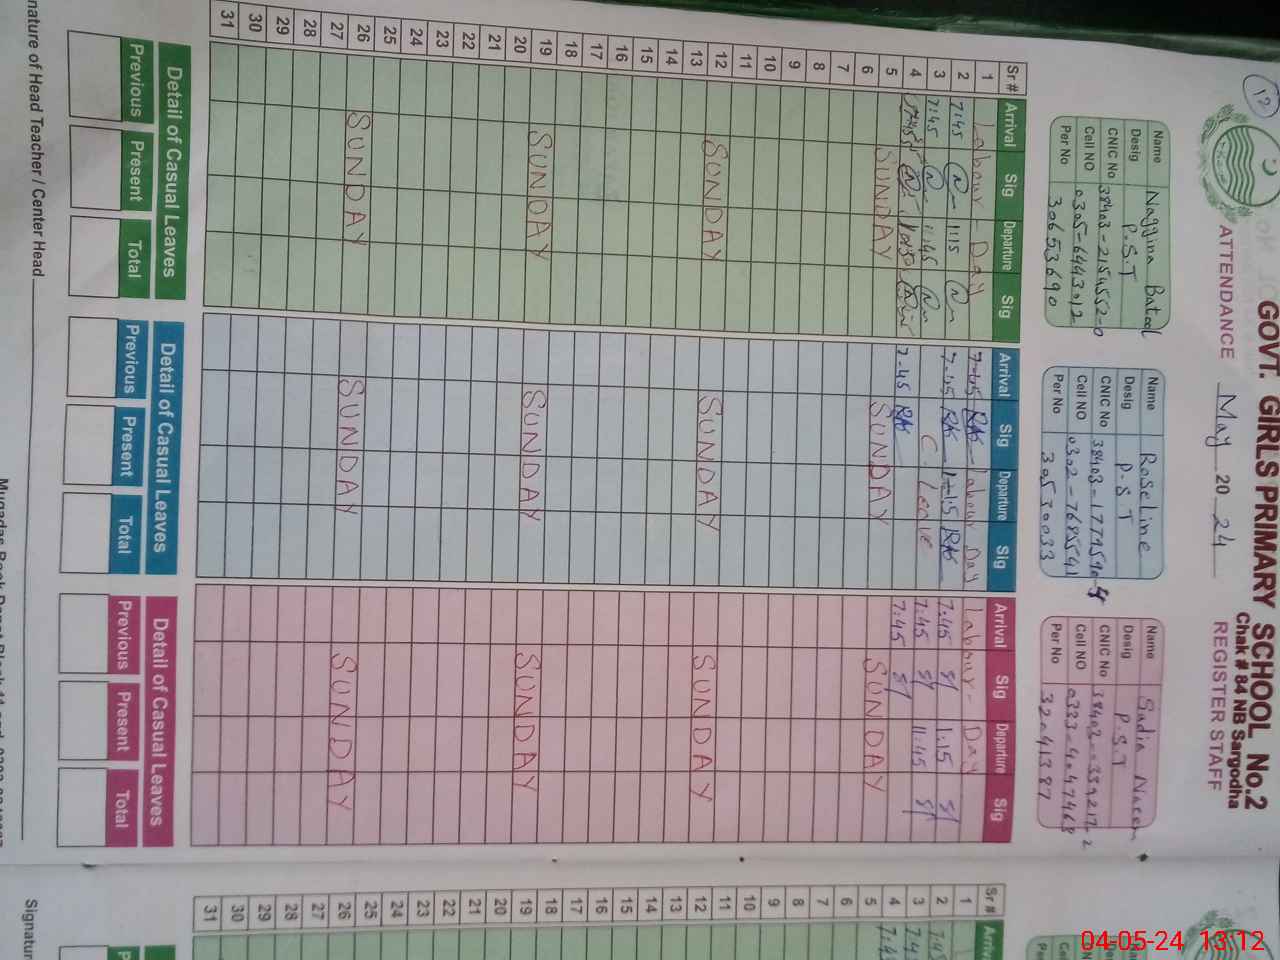 12
GOVT. GIRLS PRIMARY SCHOOL No.2
Chak # 84 NB Sargodha
ATTENDANCE May 20 24 REGISTER STAFF
Name Naggina Batool
Desig P.S.T
CNIC No 38403-2154552-0
Cell NO 0305-6443012
Per No 30653690
Name Roseline
Desig P.S.T
CNIC No
Cell NO 0302-7685541
Per No 30530033
Name Sadia Naeem
Desig P.S.T
CNIC No
Cell NO 0333-4047468
Per No 32041387
Sr # Arrival Sig Departure Sig Arrival Sig Departure Sig Arrival Sig Departure Sig
1 Labour-Day 7:45 Labour Day Labour-Day
2 7:45 1:15 7:45 1:15 7:45 1:15
3 7:45 11:45 C. Leave 7:45 11:45
4 7:45 7:45 7:45
5 SUNDAY SUNDAY SUNDAY
6
7
8
9
10
11
12 SUNDAY SUNDAY SUNDAY
13
14
15
16
17
18
19 SUNDAY SUNDAY SUNDAY
20
21
22
23
24
25
26 SUNDAY SUNDAY SUNDAY
27
28
29
30
31
Detail of Casual Leaves Detail of Casual Leaves Detail of Casual Leaves
Previous Present Total Previous Present Total Previous Present Total
nature of Head Teacher / Center Head
Sr #
1
2
3
4
5
6
7
8
9
10
11
12
13
14
15
16
17
18
19
20
21
22
23
24
25
26
27
28
29
30
31
Name
Desig
CNIC No
Cell NO
Per No
Signatur
04-05-24 13:12